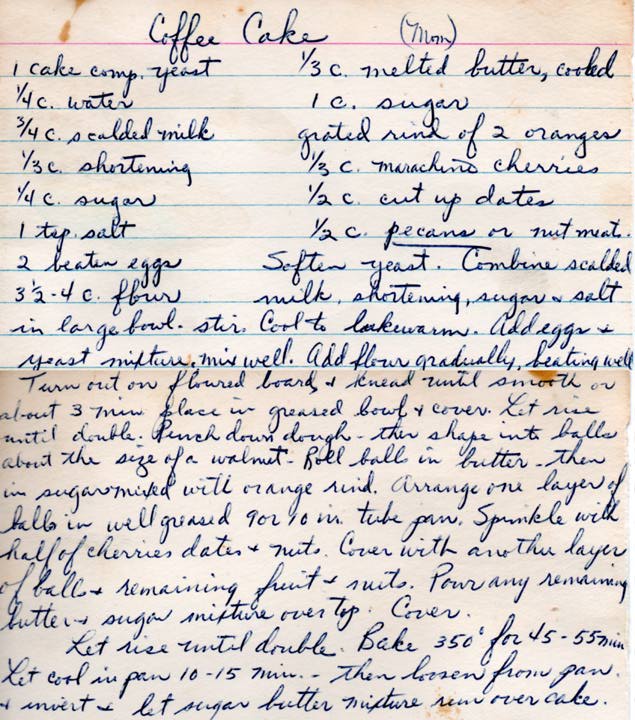 Coffee Cake (Mom)
1 cake comp. yeast
1/4 c. water
3/4 c. scalded milk
1/3 c. shortening
1/4 c. sugar
1 tsp. salt
2 beaten eggs
3 1/2 - 4 c. flour
1/3 c. melted butter, cooled
1 c. sugar
grated rind of 2 oranges
1/3 c. marachino cherries
1/2 c. cut up dates
1/2 c. pecans or nut meats.
Soften yeast. Combine scalded
milk, shortening, sugar & salt
in large bowl. stir. Cool to lukewarm. Add eggs &
yeast mixture, mix well. Add flour gradually, beating well
Turn out on floured board, & knead until smooth or
about 3 min place in greased bowl & cover. Let rise
until double. Punch down dough - then shape into balls
about the size of a walnut - Roll balls in butter - then
in sugar mixed with orange rind. Arrange one layer of
balls in well greased 9 or 10 in. tube pan. Sprinkle with
half of cherries dates & nuts. Cover with another layer
of balls & remaining fruit & nuts. Pour any remaining
butter & sugar mixture over top. Cover.
Let rise until double. Bake 350° for 45-55 min
Let cool in pan 10-15 min. - then loosen from pan.
& invert & let sugar butter mixture run over cake.